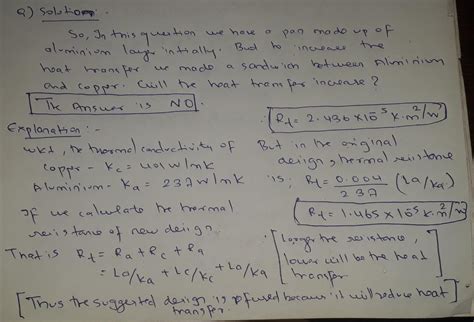 Q) Solution :-
So, In this question we have a pan made up of
al-minium layer intially. But to increase the
heat transfer we made a sandwich between Aluminium
and copper. Cwill the heat transfer increase?
The Answer is NO.
Explanation :-
WKT, the thermal conductivity of
Copper - Kc = 401 W/mk
Aluminium - Ka = 237 W/mk
If we calculate the thermal
resistance of new design.
That is Rt = Ra + Rc + Ra
= La/Ka + Lc/Kc + La/Ka
Rt = 2.436 × 10^-5 K.m²/W
But in the original
design, thermal resistance
is; Rt = 0.004/237 (La/Ka)
Rt = 1.465 × 10^5 K.m²/W
[Larger the resistance,
lower will be the heat
transfer]
[Thus the suggested design is refused because it will reduce heat
transfer.]